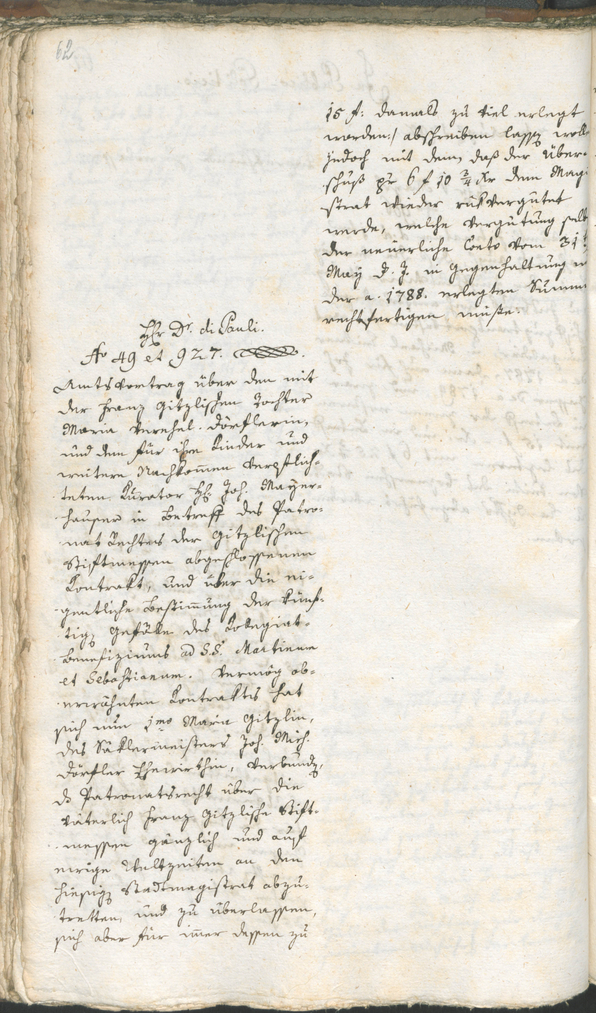 62
15 f: damals zu viel erlegt
worden:/ abschreiben lassen
jedoch mit dem, daß der Über-
schuß pr 6 f 10 ¾ kr dem Magi-
strat wieder rükvergütet
werde, welche Vergütung
der neuerliche Conto vom 31t
May d. J. in Gegenhaltung
der a. 1788. erlegten Summ
rechtfertigen müße.
Hr Dr. di Pauli.
No 49 et 927.
Amtsvortrag über den mit
der Franz Gitzlischen Tochter
Maria verehel. Dörflerin,
und dem für ihre Kinder und
weitere Nachkommen verpflich-
teten Kurator H. Joh. Mayer-
hauser in Betreff des Patro-
nat Rechtes der Gitzlischen
Stiftmessen abgeschlossenen
Kontrakt, und über die ei-
gentliche Bestimmung der künf-
tigen Gefälle des Kolegiat-
Benefiziums ad S.S. Martinum
et Sebastianum. Vermög ob-
erwähnten Kontraktes hat
sich nun 1mo Maria Gitzlin,
des Säklermeisters Joh. Mich.
Dörfler Ehewirthin, verbunden,
ds Patronatsrecht über die
väterlich Franz Gitzlische Stift-
messen gänzlich und auf
ewige Weltzeiten an den
hiesigen Stadtmagistrat abzu-
tretten, und zu überlassen,
sich aber für immer dessen zu